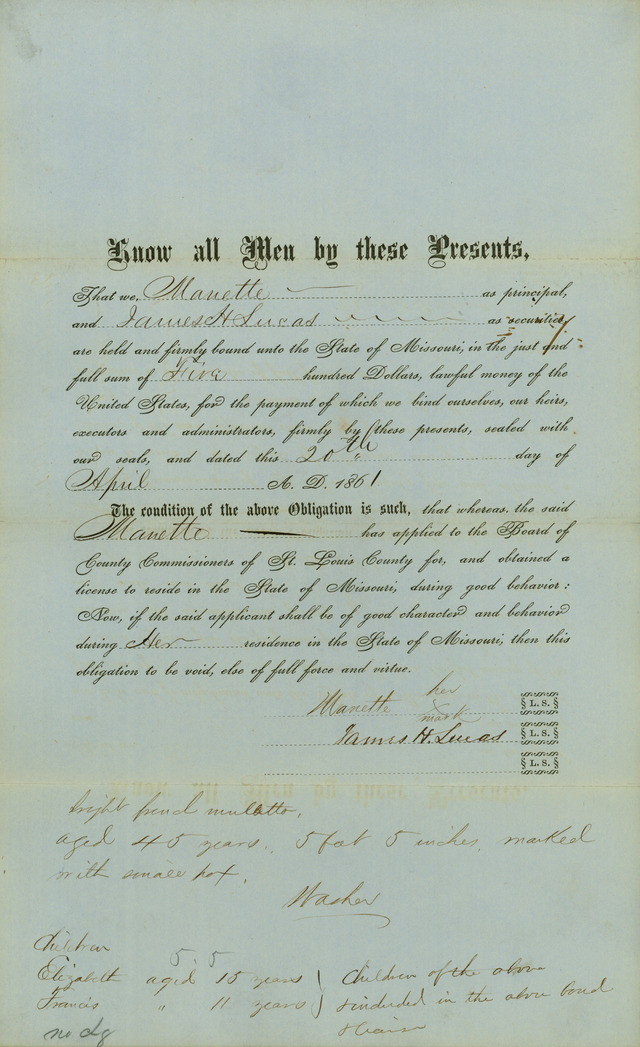 Know all Men by these Presents,
That we, Manette as principal,
and James H Lucas as securities,
are held and firmly bound unto the State of Missouri, in the just and
full sum of Five hundred Dollars, lawful money of the
United States, for the payment of which we bind ourselves, our heirs,
executors and administrators, firmly by these presents, sealed with
our seals, and dated this 20th day of
April A. D. 1861
The condition of the above Obligation is such, that whereas, the said
Manette has applied to the Board of
County Commissioners of St. Louis County for, and obtained a
license to reside in the State of Missouri, during good behavior:
Now, if the said applicant shall be of good character and behavior
during Her residence in the State of Missouri, then this
obligation to be void, else of full force and virtue.
Manette her L. S.
mark
James H. Lucas L. S.
L. S.
bright french mulatto,
aged 45 years, 5 feet 5 inches, marked
with small pox,
Washer
Children
5 5
Elizabeth aged 15 years } Children of the above
Francis " 11 years } & included in the above bond
no dg